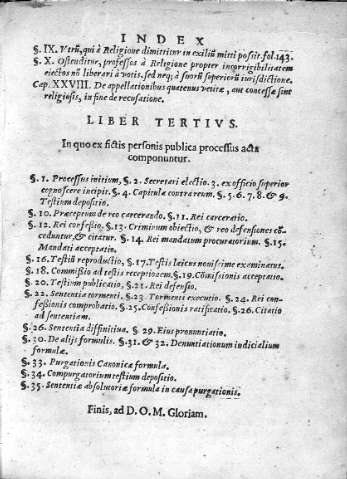 INDEX
§. IX. Vtrũ, qui à Religione dimittitur in exiliũ mitti possit. fol. 143.
§. X. Ostenditur, professos à Religione propter incorrigibilitatem
eiectos nõ liberari à votis. sed neq; à suorũ superiorũ iurisdictione.
Cap. XXVIII. De appellationibus quatenus vetitæ, aut concessæ sint
religiosis, in fine de recusatione.
LIBER TERTIVS.
In quo ex fictis personis publica processus acta
componuntur.
§. 1. Processus initium, §. 2. Secretarij electio. 3. ex officio superior
cognoscere incipit. §. 4. Capitula contra reum. §. 5. 6. 7. 8. & 9.
Testium depositio.
§. 10. Præceptum de reo carcerando. §. 11. Rei carceratio.
§. 12. Rei confessio. §. 13. Criminum obiectio, & reo defensiones cõ
ceduntur, & citatur. §. 14. Rei mandatum procuratorium. §. 15.
Mandati acceptatio.
§. 16. Testiũ reproductio, §. 17. Testis laicus nouissime examinatur.
§. 18. Commissio ad testis receptionem, §. 19. Cõmissionis acceptatio.
§. 20. Testium publicatio, §. 21. Rei defensio.
§. 22. Sententia tormenti. §. 23. Tormenti executio. §. 24. Rei con-
fessionis comprobatio. §. 25. Confessionis ratificatio. §. 26. Citatio
ad sententiam.
§. 26. Sententia diffinitiua. §. 29. Eius pronuntiatio.
§. 30. De alijs formulis. §. 31. & 32. Denuntiationum iudicialium
formulæ.
§. 33. Purgationis Canonicæ formula.
§. 34. Compurgatorium testium depositio.
§. 35. Sententiæ absolutoriæ formula in causa purgationis.
Finis, ad D. O. M. Gloriam.